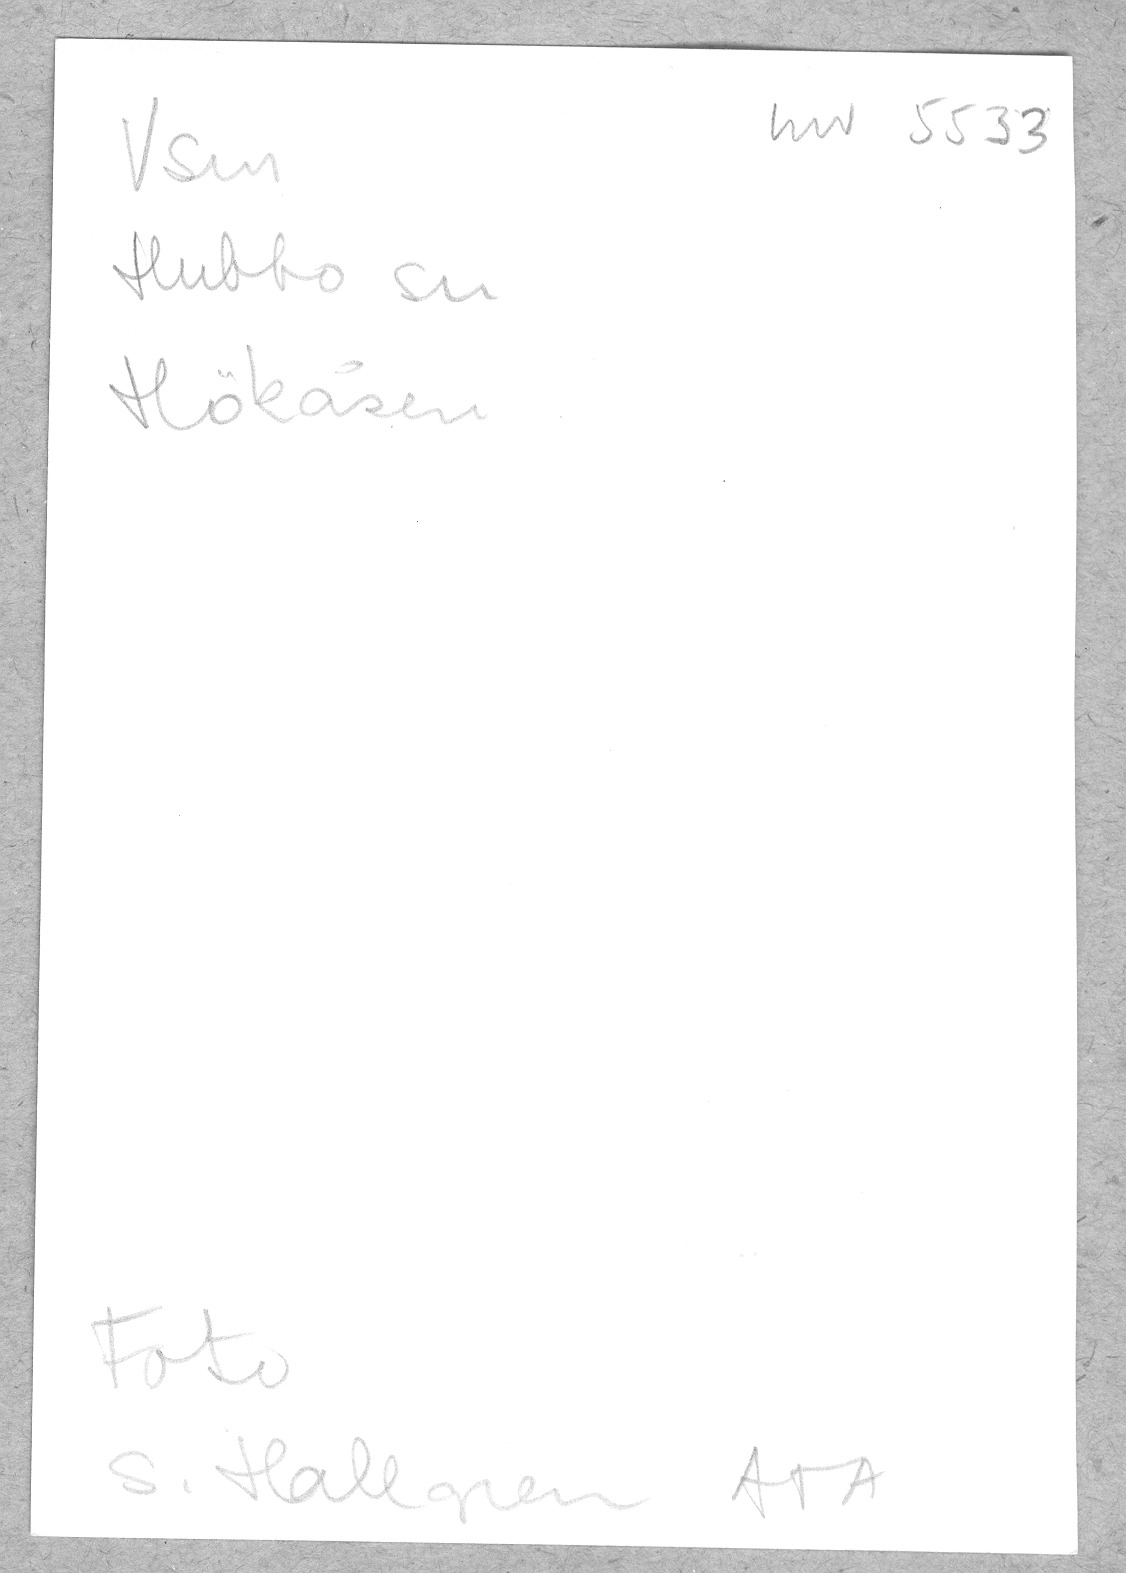 inv 5533
Vsm
Hubbo sn
Hökåsen
Foto
S. Hallgren ATA